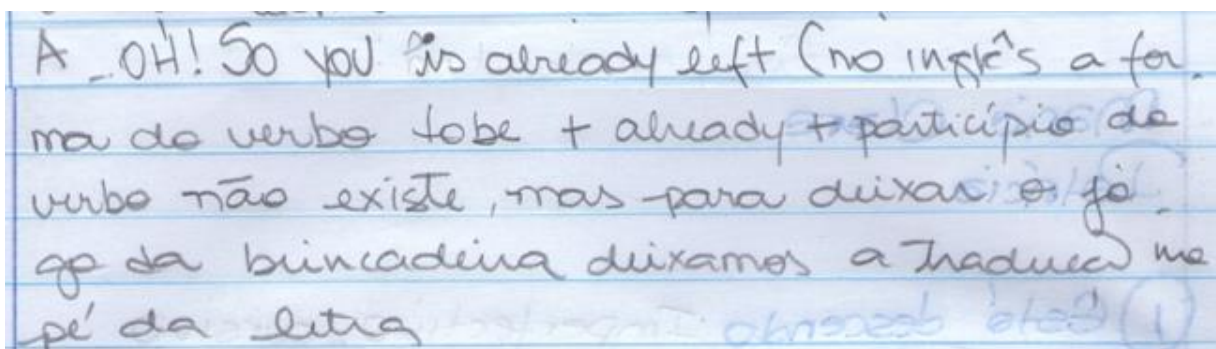 A - OH! So you is already left (no inglês a for
ma do verbo tobe + already + particípio do
verbo não existe, mas para deixar o jo
go da brincadeira deixamos a Traducão no
pé da letra